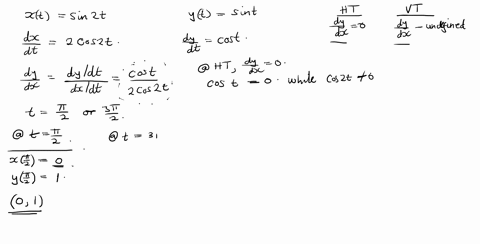 x(t) = sin2t
y(t) = sint
HT
dy/dx = 0
VT
dy/dx - undefined
dx/dt = 2cos2t.
dy/dt = cost.
dy/dx = dy/dt / dx/dt = cost / 2cos2t
@ HT, dy/dx = 0.
cos t = 0. while cos2t ≠ 0
t = π/2 or 3π/2
@ t = π/2.
@ t = 31
x(π/2) = 0
y(π/2) = 1.
(0, 1)